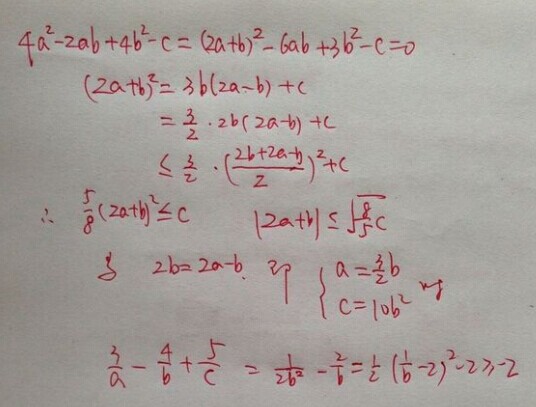 4a²-2ab+4b²-c = (2a+b)²-6ab+3b²-c=0
(2a+b)² = 3b(2a-b)+c
= 3/2 · 2b(2a-b)+c
≤ 3/2 · ((2b+2a-b)/2)²+c
∴ 5/8(2a+b)² ≤ c |2a+b| ≤ √(8/5 c)
2b=2a-b. 即 { a=3/2 b
c=10b² 时
3/a - 4/b + 5/c = 1/2b² - 2/b = 1/2(1/b-2)²-2≥-2